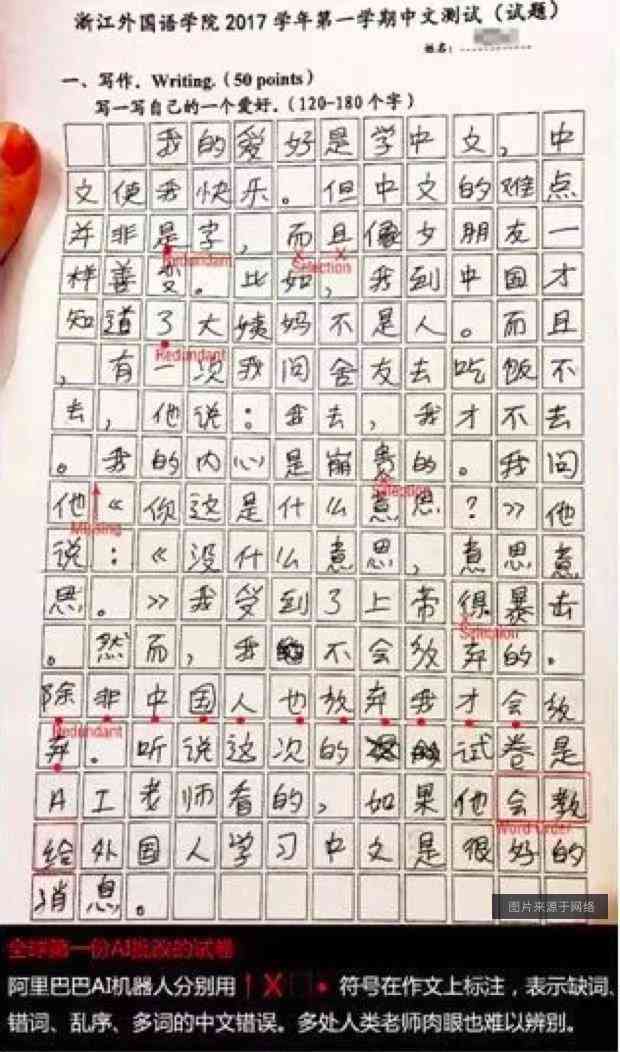 浙江外国语学院 2017 学年第一学期中文测试（试题）
姓名：
一、写作．Writing.（50 points）
写一写自己的一个爱好．（120-180 个字）
我的爱好是学中文，中
文使我快乐。但中文的难点
并非是字，而且像女朋友一
Redundant Selection
样善变。比如，我到中国才
知道了大姨妈不是人。而且
Redundant
，有一次我问舍友去吃饭不
去，他说：我去，我才不去
。我的内心是崩贵的。我问
Selection
他《你这是什么意思？》他
Missing
说：《没什么意思，意思意
思。》我受到了上帝得暴击
Selection
。然而，我不会放弃的。
除非中国人也放弃我才会放
Redundant
弃。听说这次的试卷是
AI老师看的，如果他会教
Word Order
给外国人学习中文是很好的
消息。
图片来源于网络
全球第一份AI批改的试卷
阿里巴巴AI机器人分别用 ↑ X □ • 符号在作文上标注，表示缺词、
错词、乱序、多词的中文错误。多处人类老师肉眼也难以辨别。